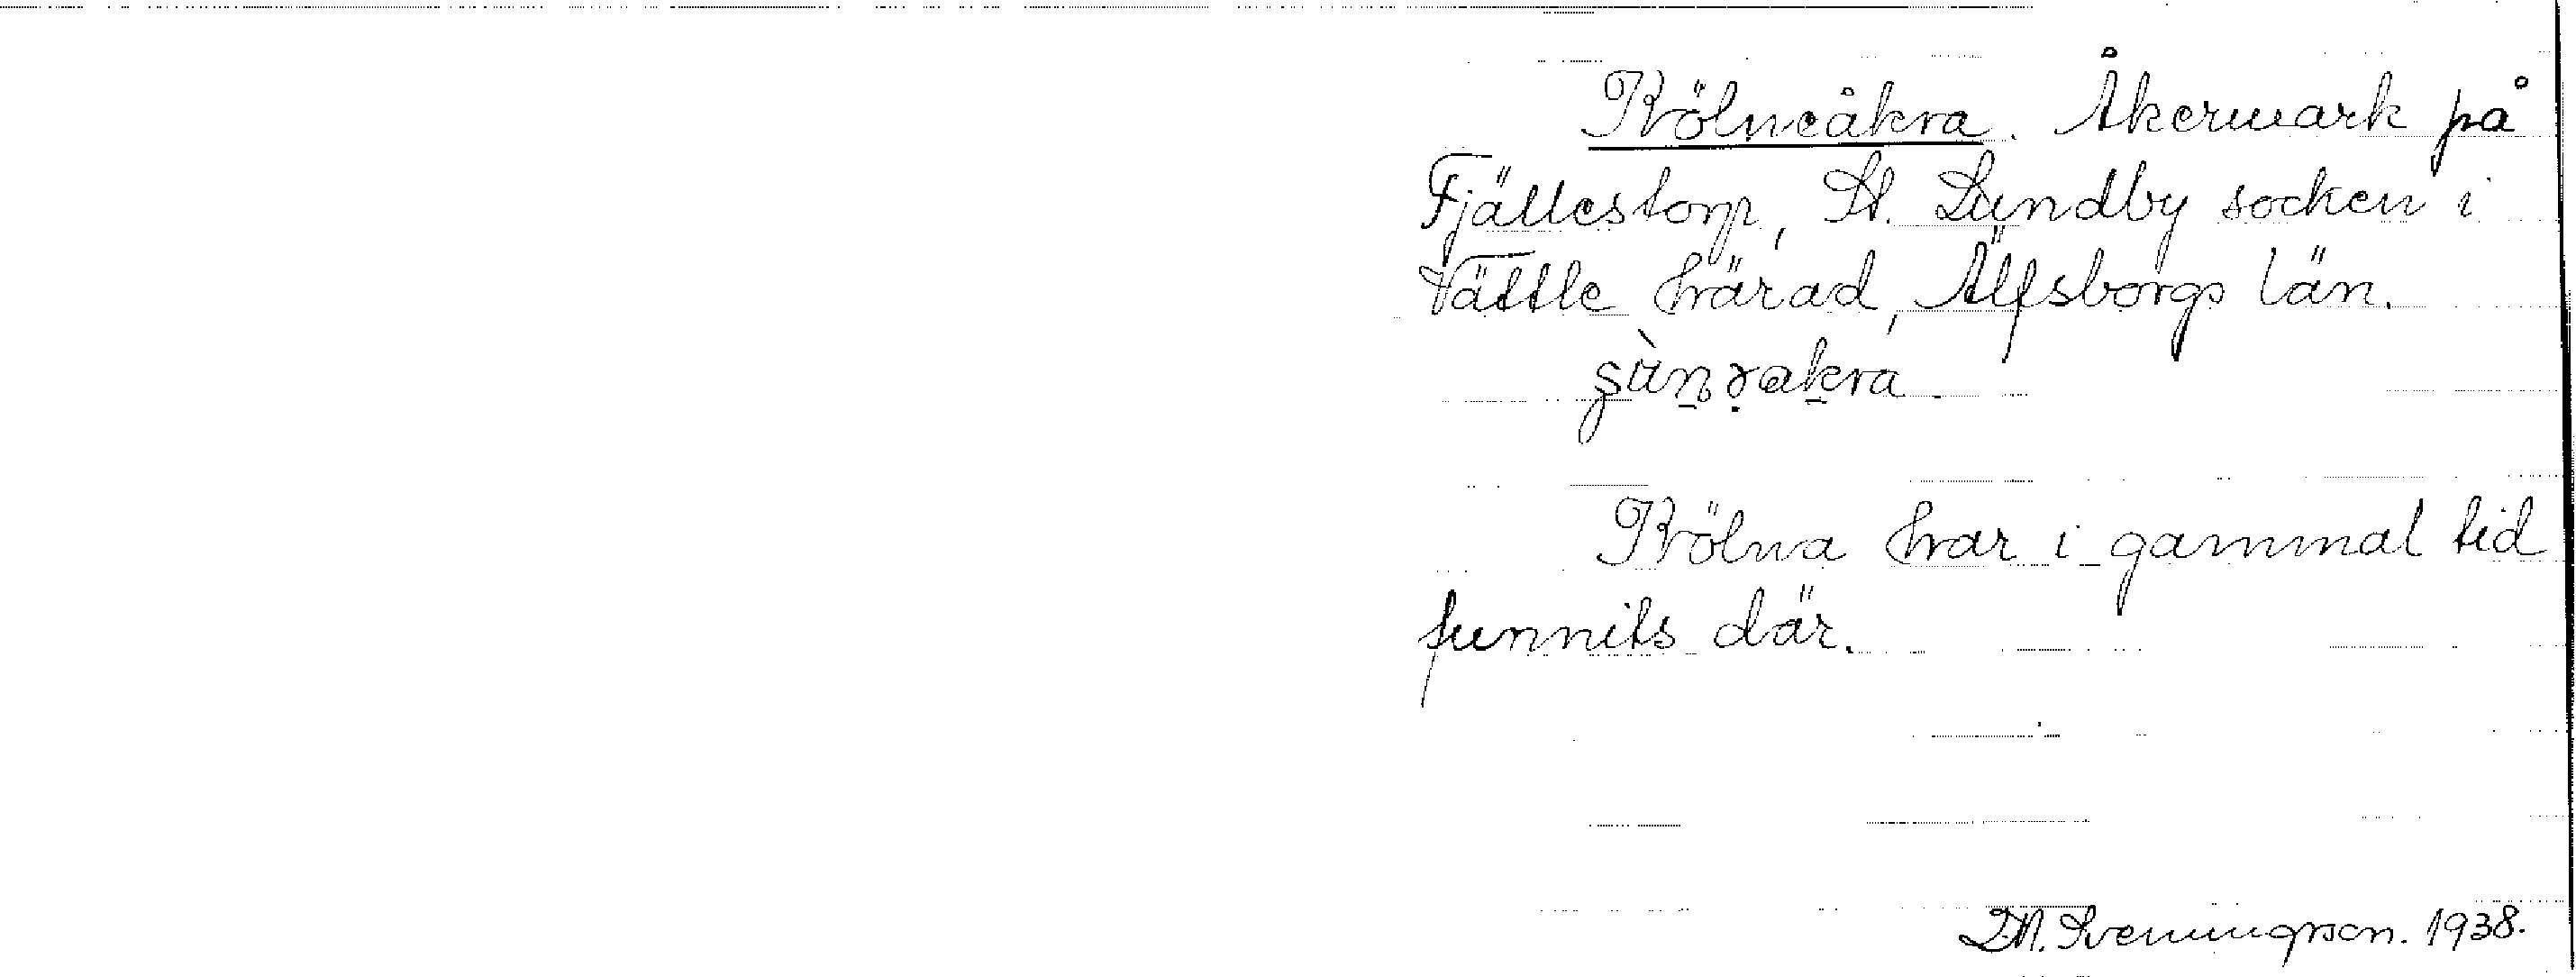 Kölneåkra. Åkermark på
Fjällestorp, St. Lundby socken i
Vättle härad, Älfsborgs län.
Kölna har i gammal tid
funnits där.
Sveningson. 1938.